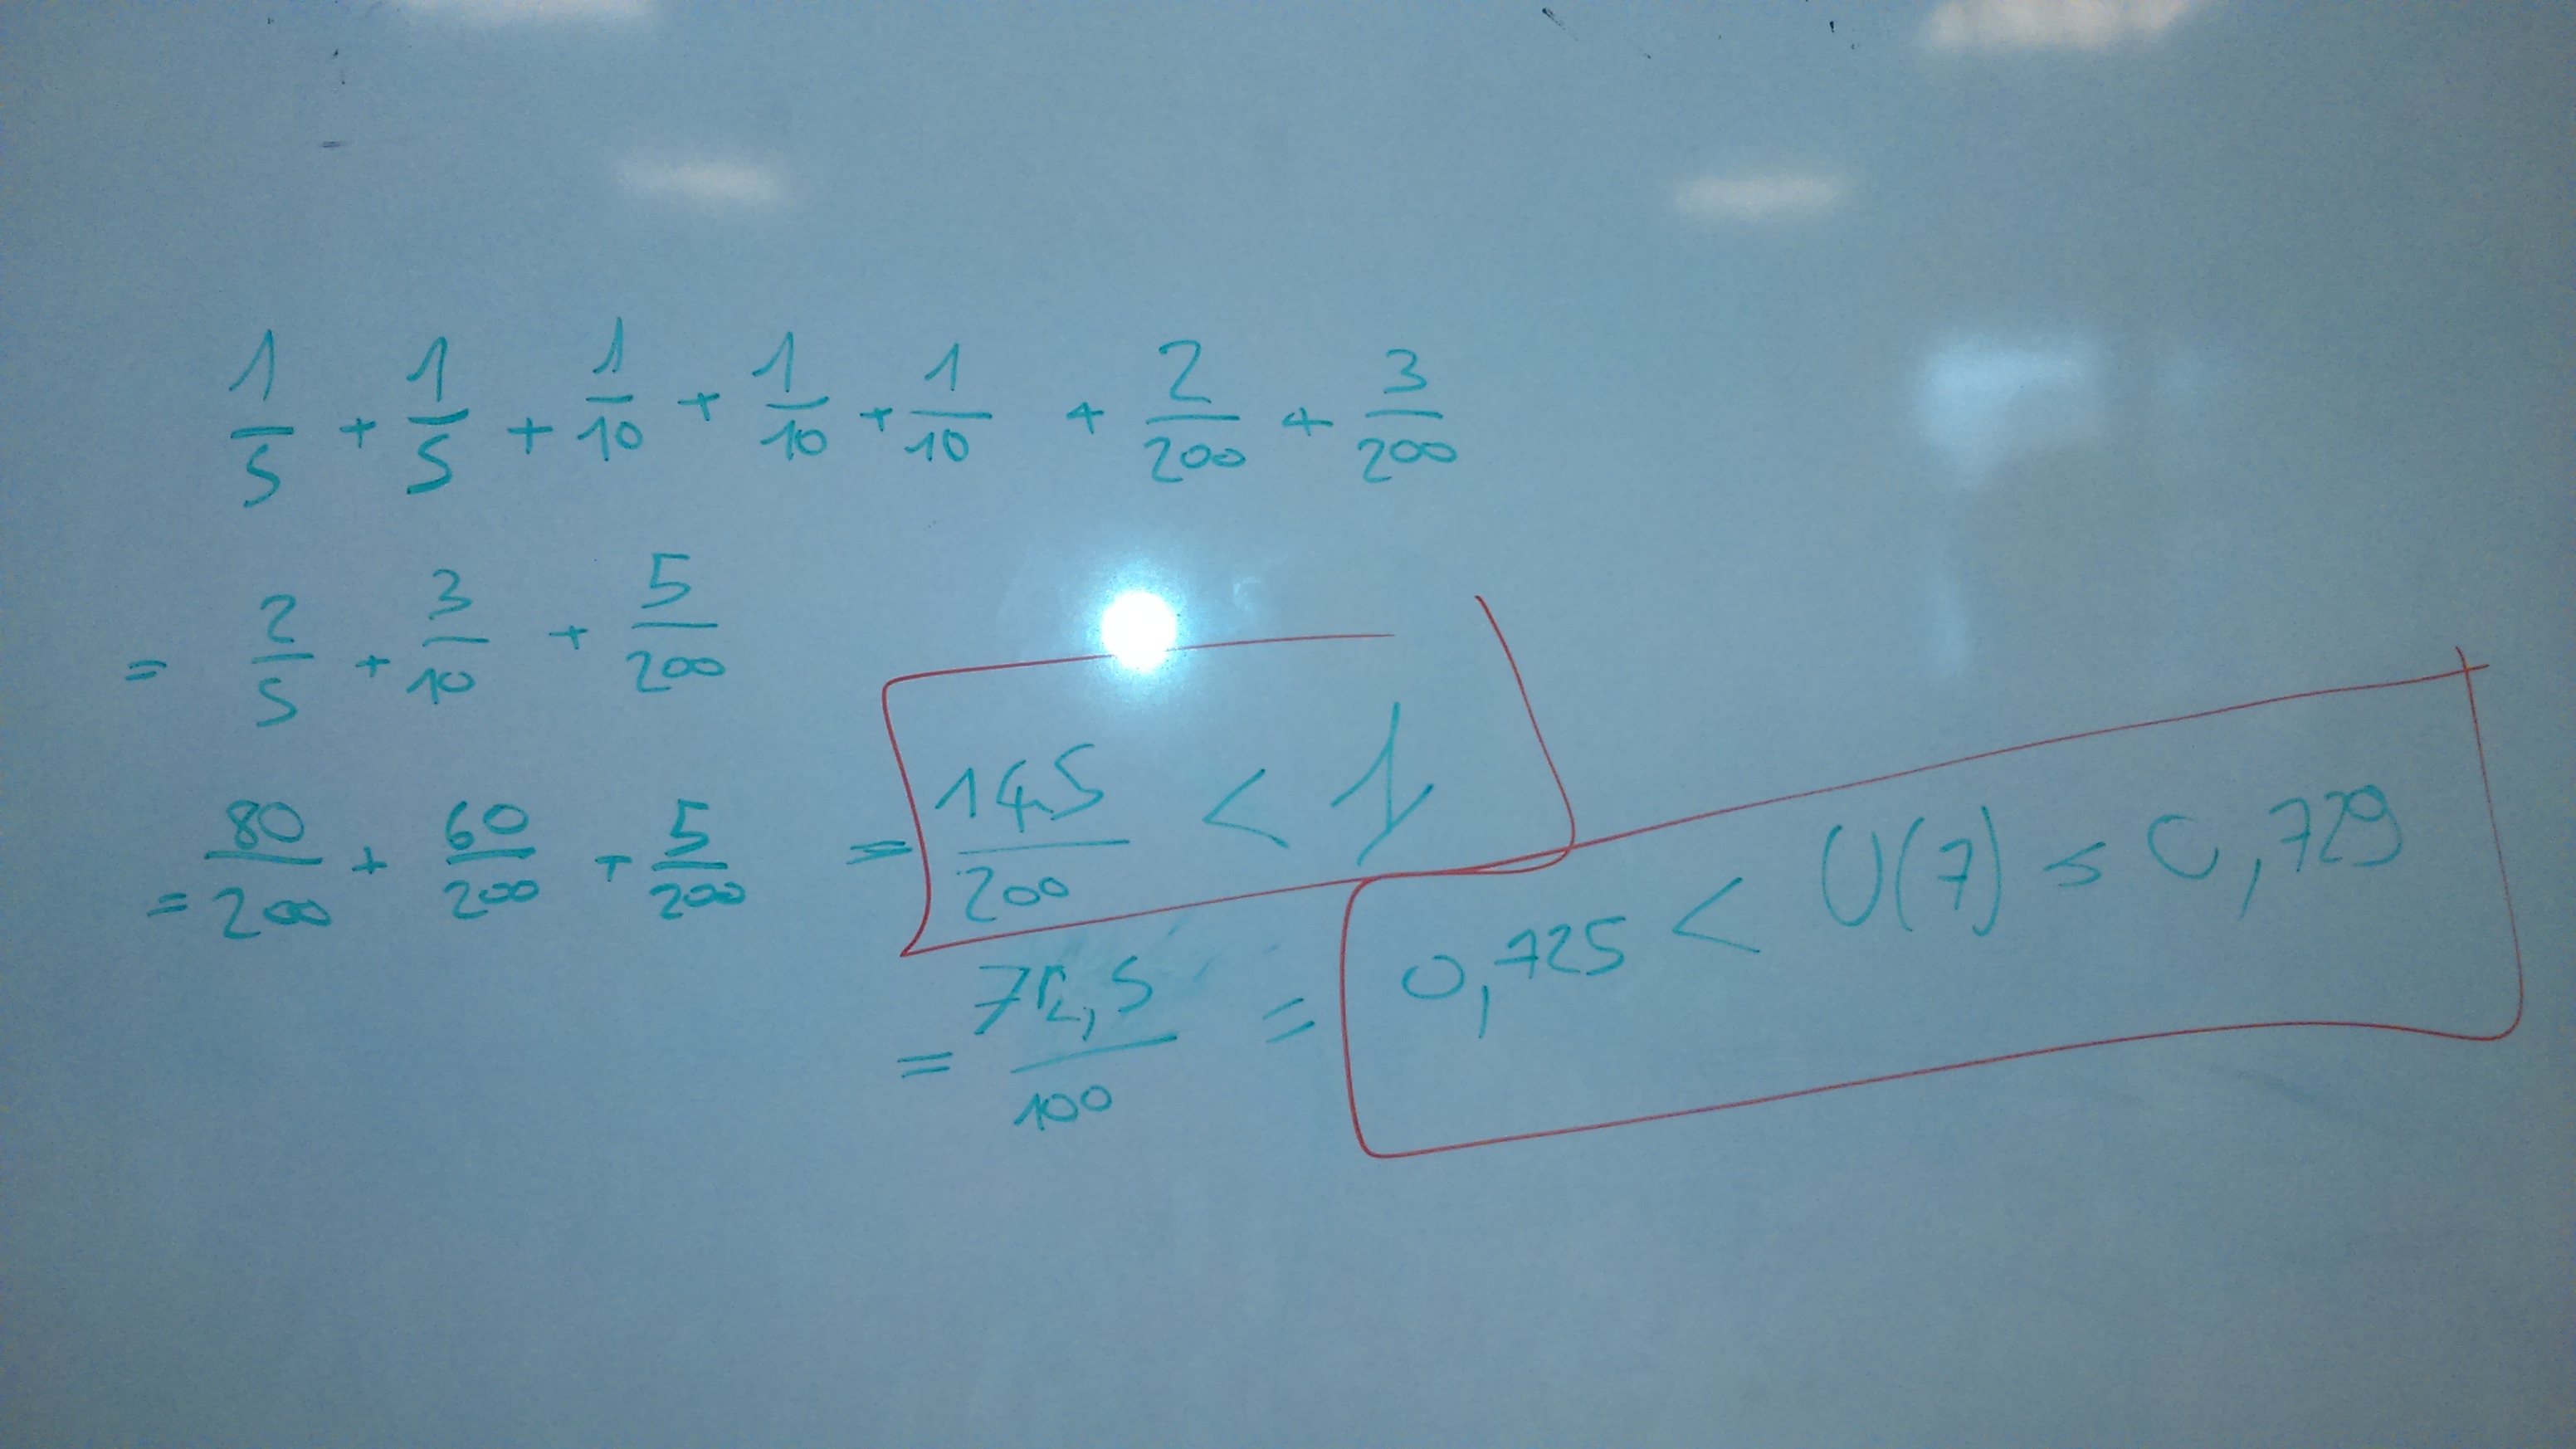 1/5 + 1/5 + 1/10 + 1/10 + 1/10 + 2/200 + 3/200
= 2/5 + 3/10 + 5/200
= 80/200 + 60/200 + 5/200 = 145/200 < 1
= 72,5/100 = 0,725 < U(7) = 0,729